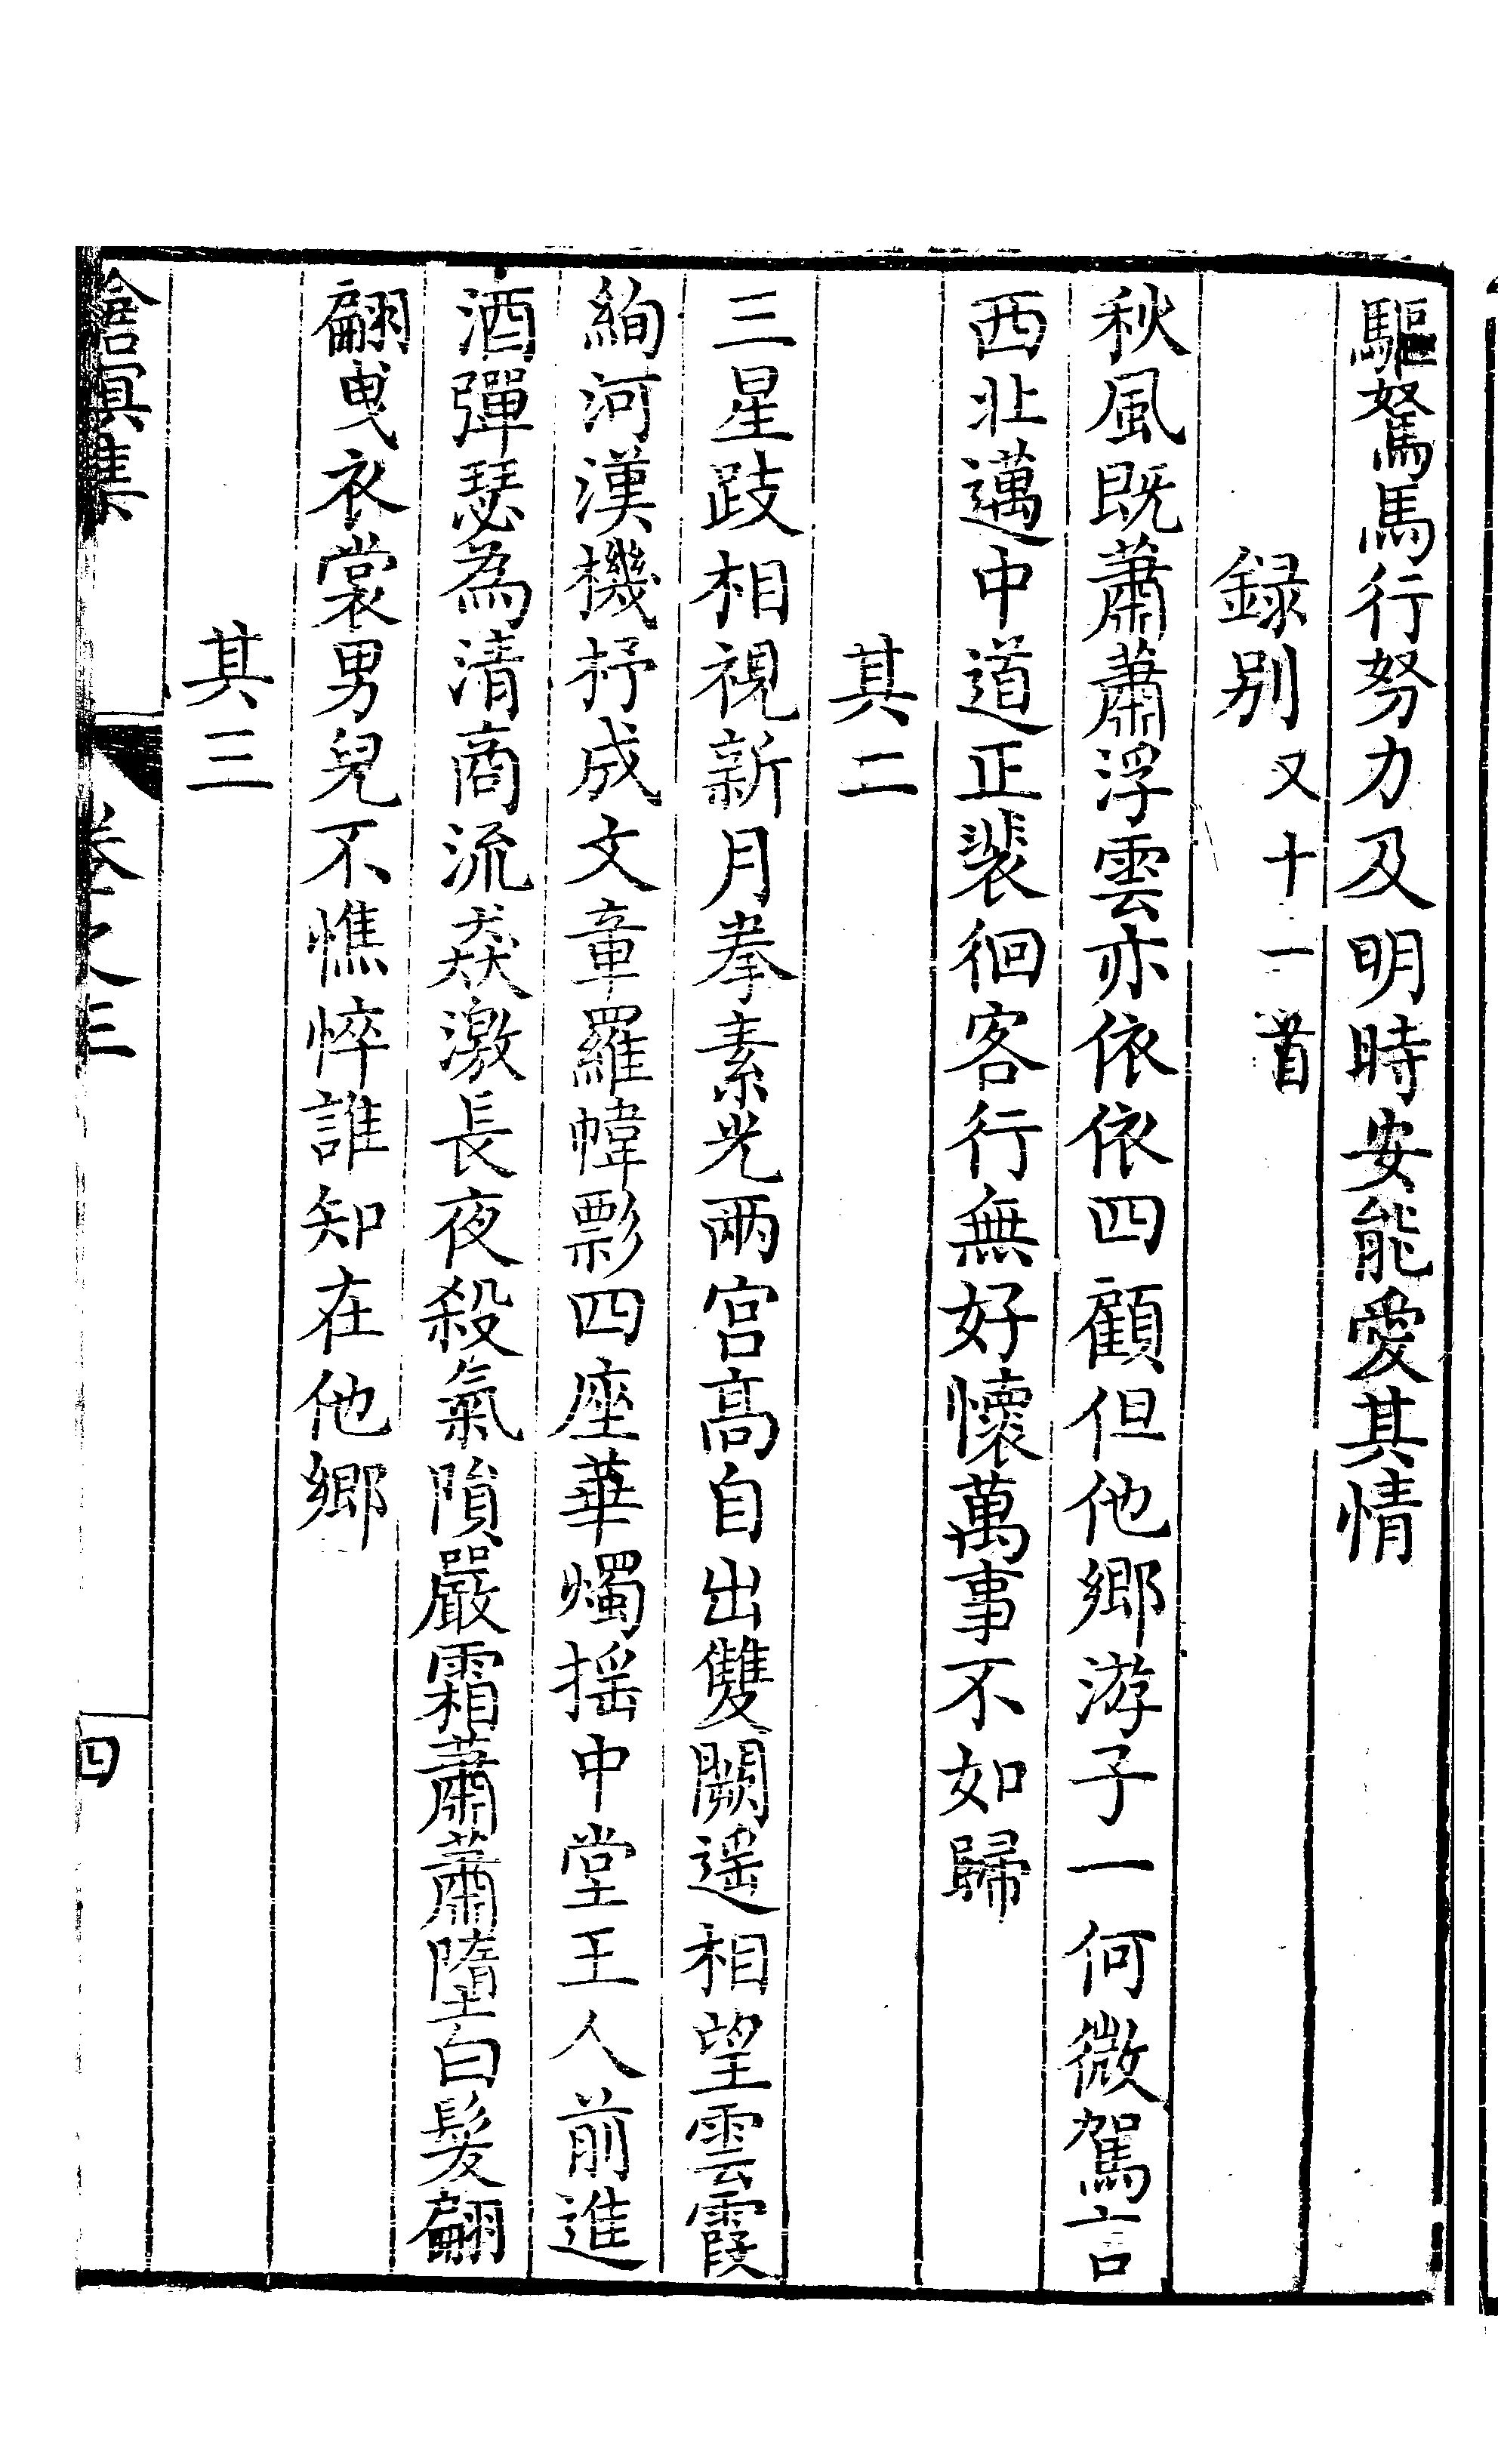 驅駑馬行努力及明時安能愛其情
録别又十一首
秋風既蕭蕭浮雲亦依依四顧但他鄉游子一何微駕言
西北邁中道正裴徊客行無好懷萬事不如歸
其二
三星跂相視新月拳素光兩宮高自出雙闕遥相望雲霞
絢河漢機抒成文章羅幃影四座華燭揺中堂王人前進
酒彈瑟為清商流猋激長夜殺氣隕嚴霜蕭蕭墮白髮翩
翩曳衣裳男兒不憔悴誰知在他鄉
其三
滄溟集 卷之三 四